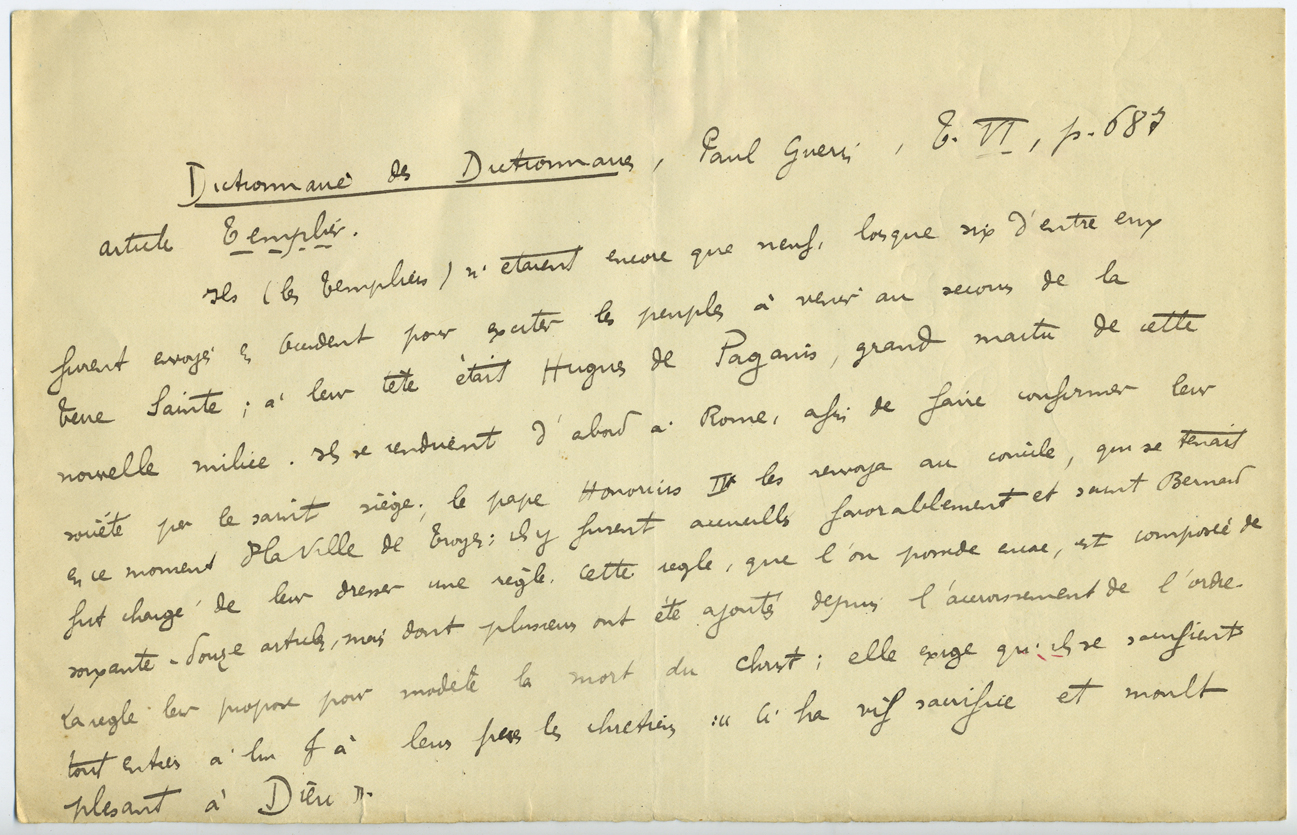 Dictionnaire des Dictionnaires, Paul Guerin, T. VI, p. 687
article Templier.
Ils (les Templiers) n'etaient encore que neuf, lorsque six d'entre eux
furent envoyés en Occident pour exciter les peuples à venir au secours de la
terre Sainte ; à leur tête était Hugues de Paganis, grand maitre de cette
nouvelle milice. Ils se rendirent d'abord à Rome, afin de faire confirmer leur
société par le saint siège ; le pape Honorius II les renvoya au concile, qui se tenait
en ce moment d la Ville de Troyes ; ils y furent accueillis favorablement et saint Bernard
fut chargé de leur dresser une règle. Cette regle, que l'on possède encore, est composée de
soixante-douze articles, mais dont plusieurs ont été ajoutés depuis l'accroissement de l'ordre.
La regle leur propose pour modèle la mort du Christ ; elle exige qu'ils se sacrifient
tout entiers à lui à leurs frères les chretiens : « Ci ha vif sacrifice et moult
plesant à Dieu ».